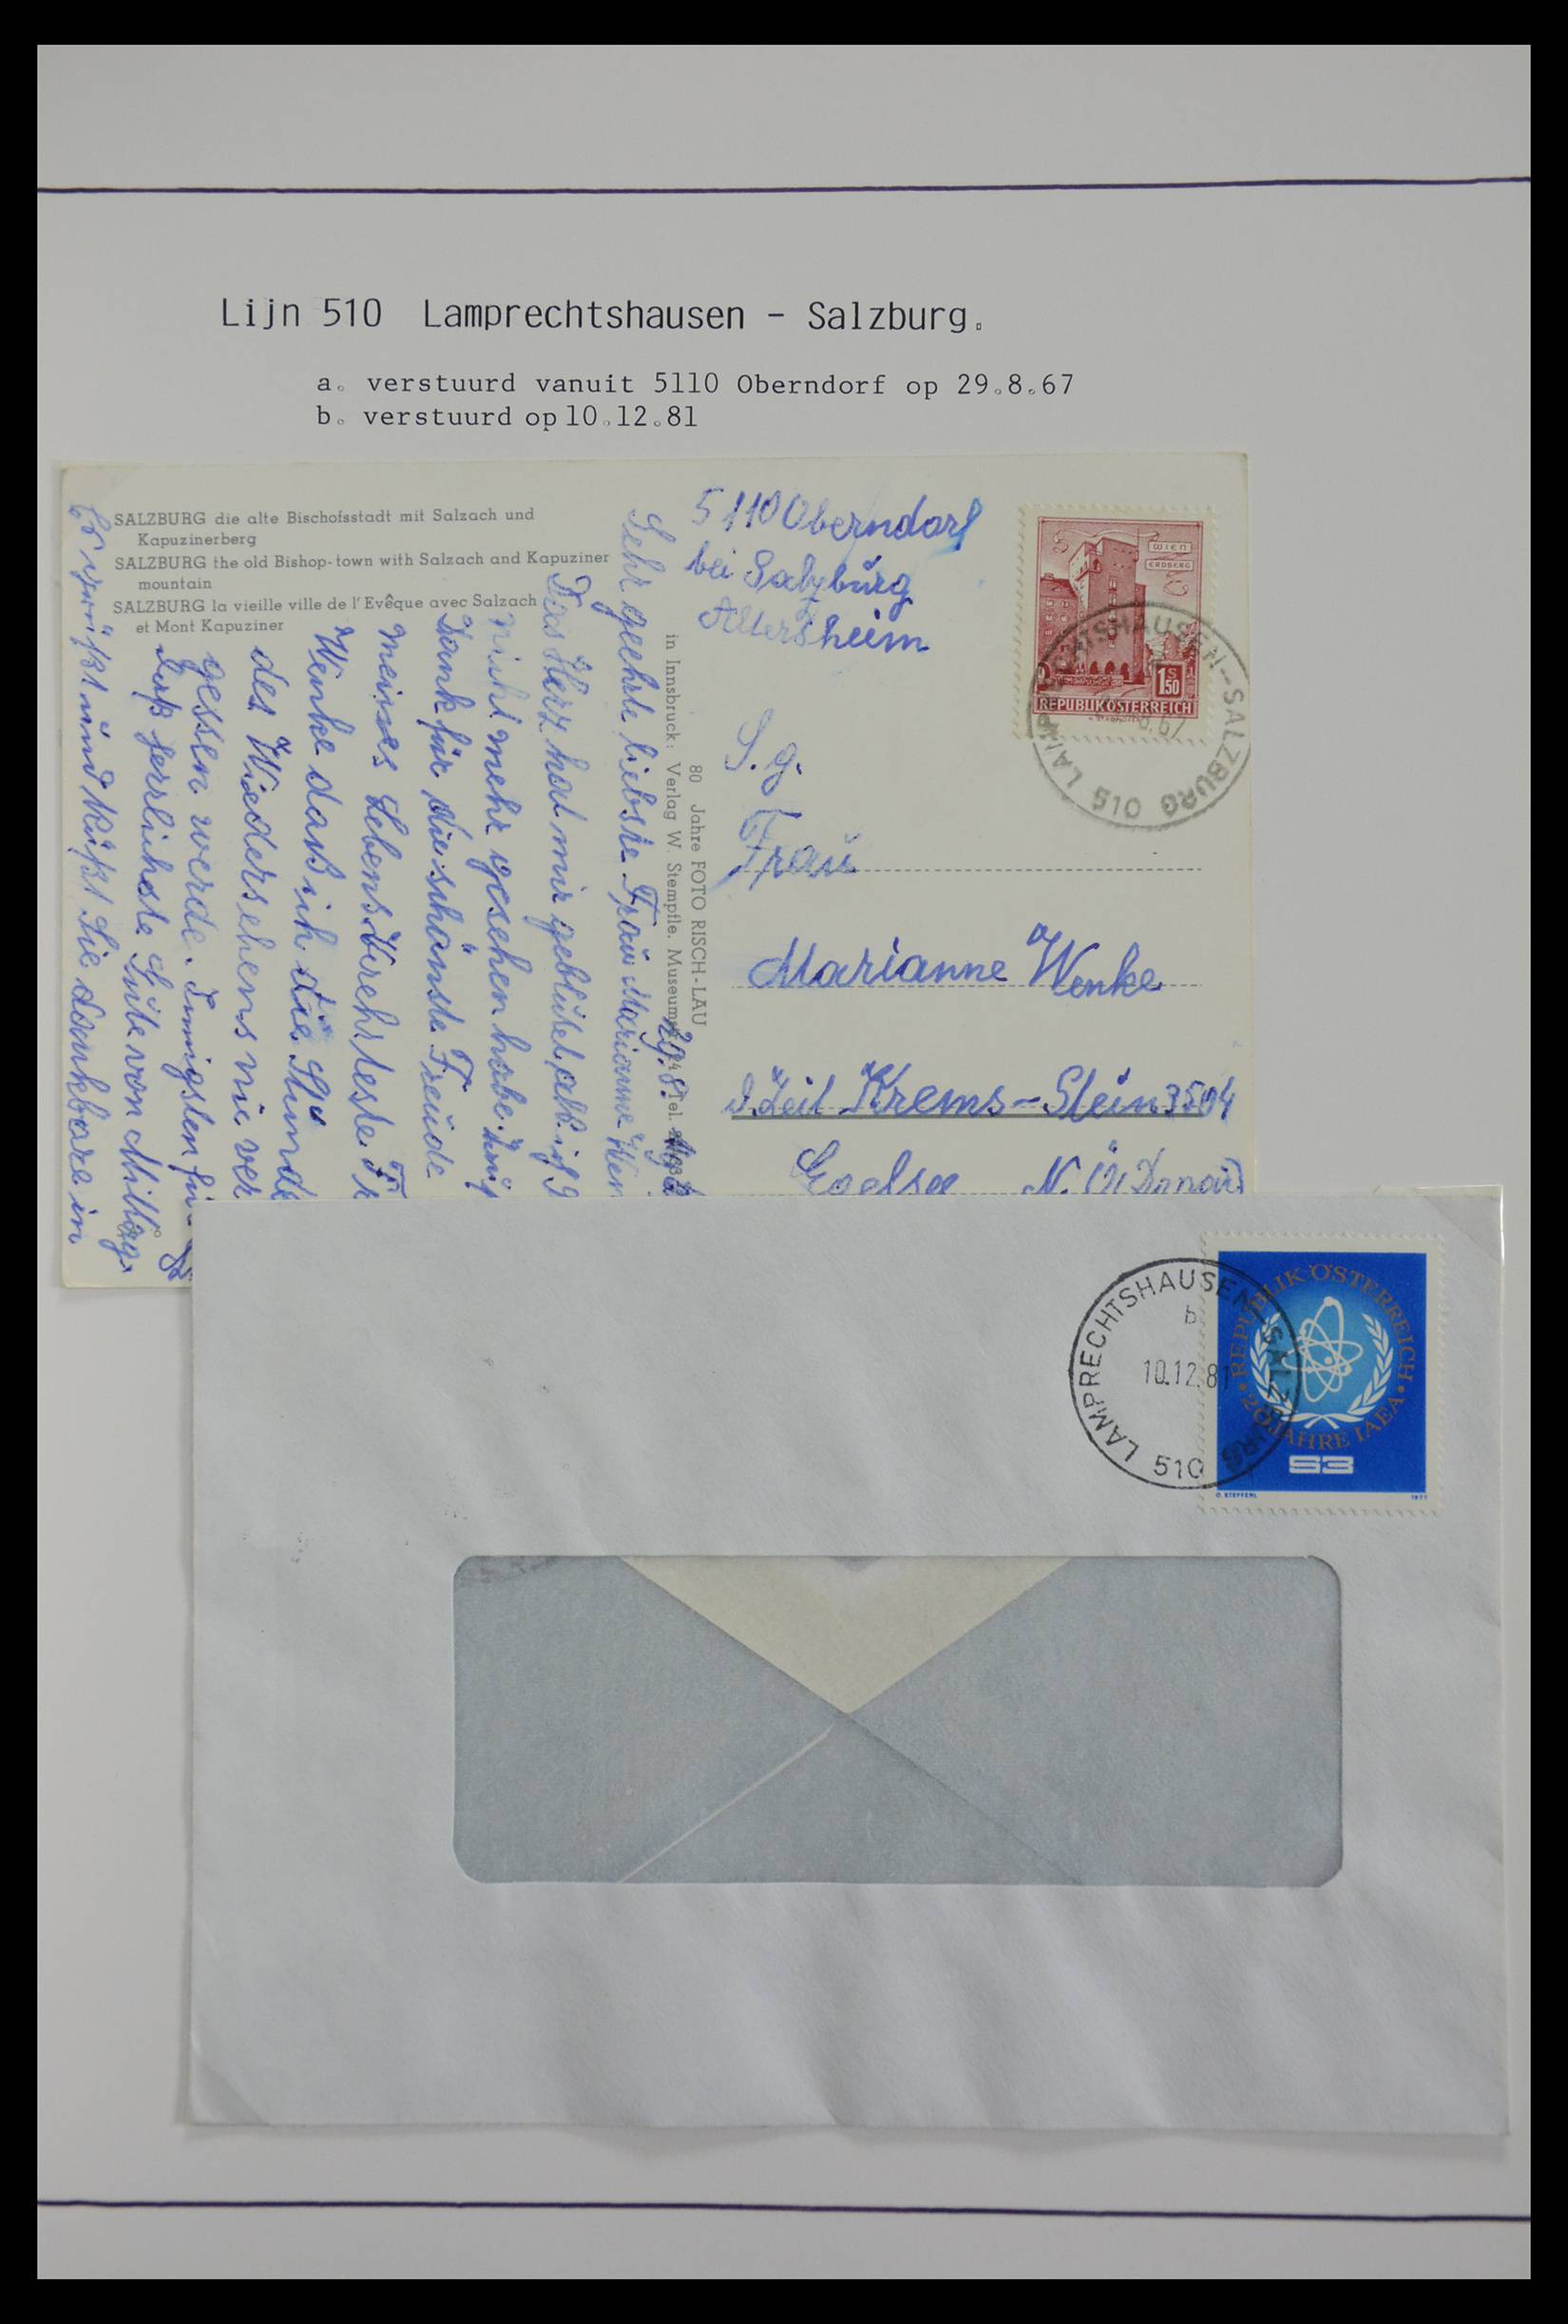 Lijn 510 Lamprechtshausen - Salzburg.
a. verstuurd vanuit 5110 Oberndorf op 29.8.67
b. verstuurd op 10.12.81
SALZBURG die alte Bischofsstadt mit Salzach und
Kapuzinerberg
SALZBURG the old Bishop-town with Salzach and Kapuziner
mountain
SALZBURG la vieille ville de l'Evêque avec Salzach
et Mont Kapuziner
5110 Oberndorf
bei Salzburg
Altersheim
WIEN
ERDBERG
1S50
REPUBLIK ÖSTERREICH
LAMPRECHTSHAUSEN-SALZBURG 510
8.67
S. g.
Frau
Marianne Wenke
Krems-Stein 3504
N.Ö. Donau
80 Jahre FOTO RISCH-LAU
in Innsbruck: Verlag W. Stempfle, Museumstr. Tel.
29.8.
Sehr geehrte liebste Frau Marianne Wen
Das Herz hat mir geblutet, als ich
nicht mehr gesehen habe.
Dank für die schönste Freude
meines Lebens Verehrteste Fr
Wenke daß ich die Stunde
des Wiedersehens nie ver
gessen werde. Innigsten für
herrlichste Güte von
Es grüßt und küßt Sie dankbare in
LAMPRECHTSHAUSEN-SALZBURG
b
10.12.81
510
REPUBLIK ÖSTERREICH
20 JAHRE IAEA
S3
O. STEFFERL 1977